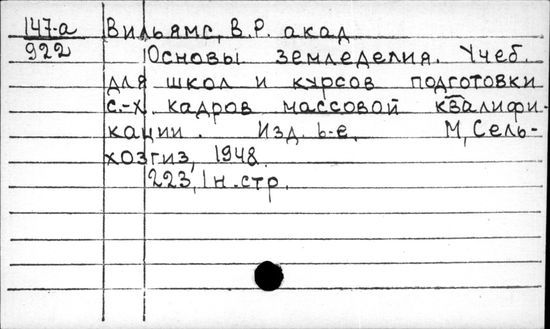 147-а Вильямс, В.Р. акад
922 Основы земледелия. Учеб.
для школ и курсов подготовки
с.-х. кадров массовой квалифи-
кации. Изд. 6-е, М, Сель-
хозгиз, 1948.
223, 1 н. стр.